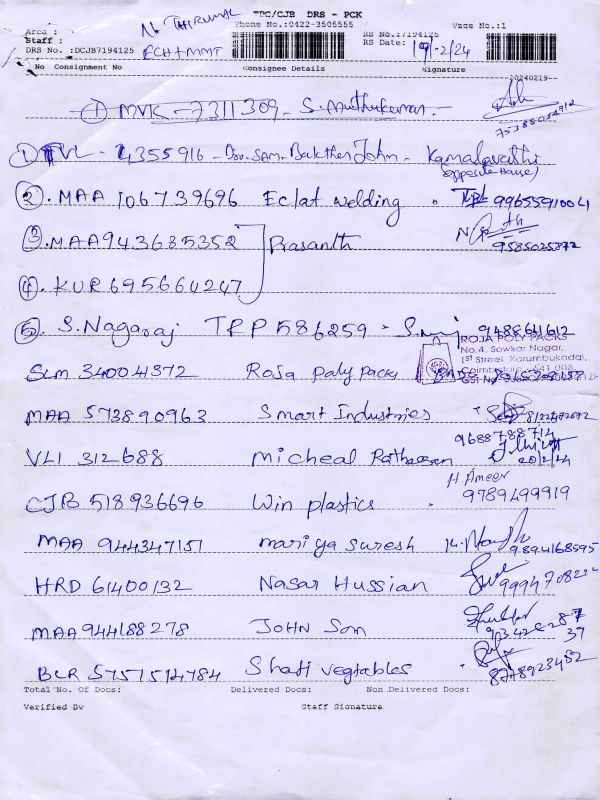 TPC/CJB DRS - PCK
Phone No.:0422-3505555
Page No.:1
N. THIRUMAL
Area :
Staff :
ECH+MMT
DRS No. :DCJB7194125
RS No.:7194125
RS Date: 19/02/24
No Consignment No Consignee Details Signature
20240219--
① MVK - 7311309 - S. Muthukumar. -
7538505
① TVL - 4355916 - Dro. SAM. Bakther John - Kamalavathi
(opposite House)
②. MAA 106739696 Eclat welding 9965591004
③. MAA943685352 Prasanth 9585025372
④. KUR695664247
⑤. S. Nagaraj TRP 586259 - 9488641612
ROJA POLY PACKS
No.4, Sowkar Nagar,
1st Street, Karumbukadai,
Coimbatore - 641 008
SLM 340041372 Roja paly packs
MAA 573890963 Smart Industries
9688788714
VLI 312688 Micheal 20/2/24
H Ameer
CJB 518936696 Win plastics 9789499919
MAA 944347151 mariya suresh 9894168595
HRD 61400132 Nasar Hussian
MAA944188278 JOHN Son
BLR 5751514784 Shafi vegtables 8778923452
Total No. Of Docs: Delivered Docs: Non Delivered Docs:
Verified By Staff Signature